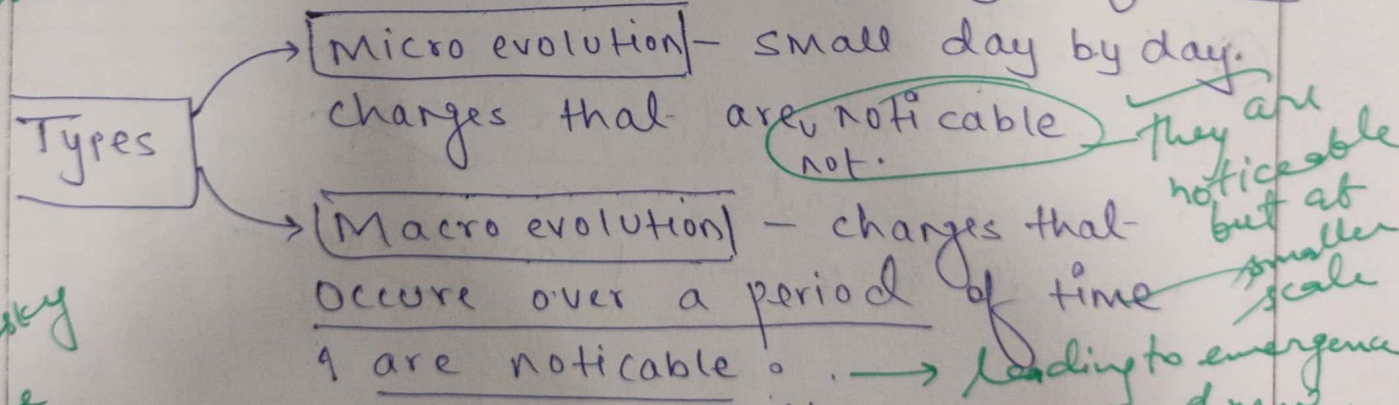 Types
Micro evolution - small day by day.
changes that are noticable
not.
they are
noticeable
but at
smaller
scale
Macro evolution - changes that
occure over a period of time
& are noticable. → leading to emergence
sky